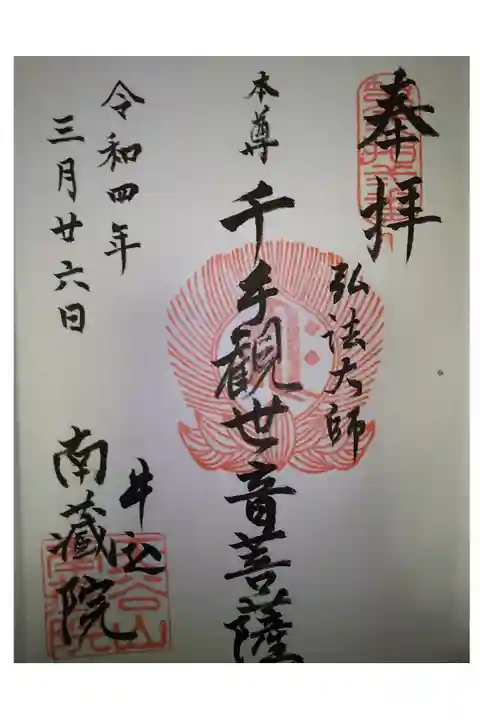 奉拝
弘法大師
本尊
千手観世音菩薩
令和四年
三月廿六日
牛込
南蔵院